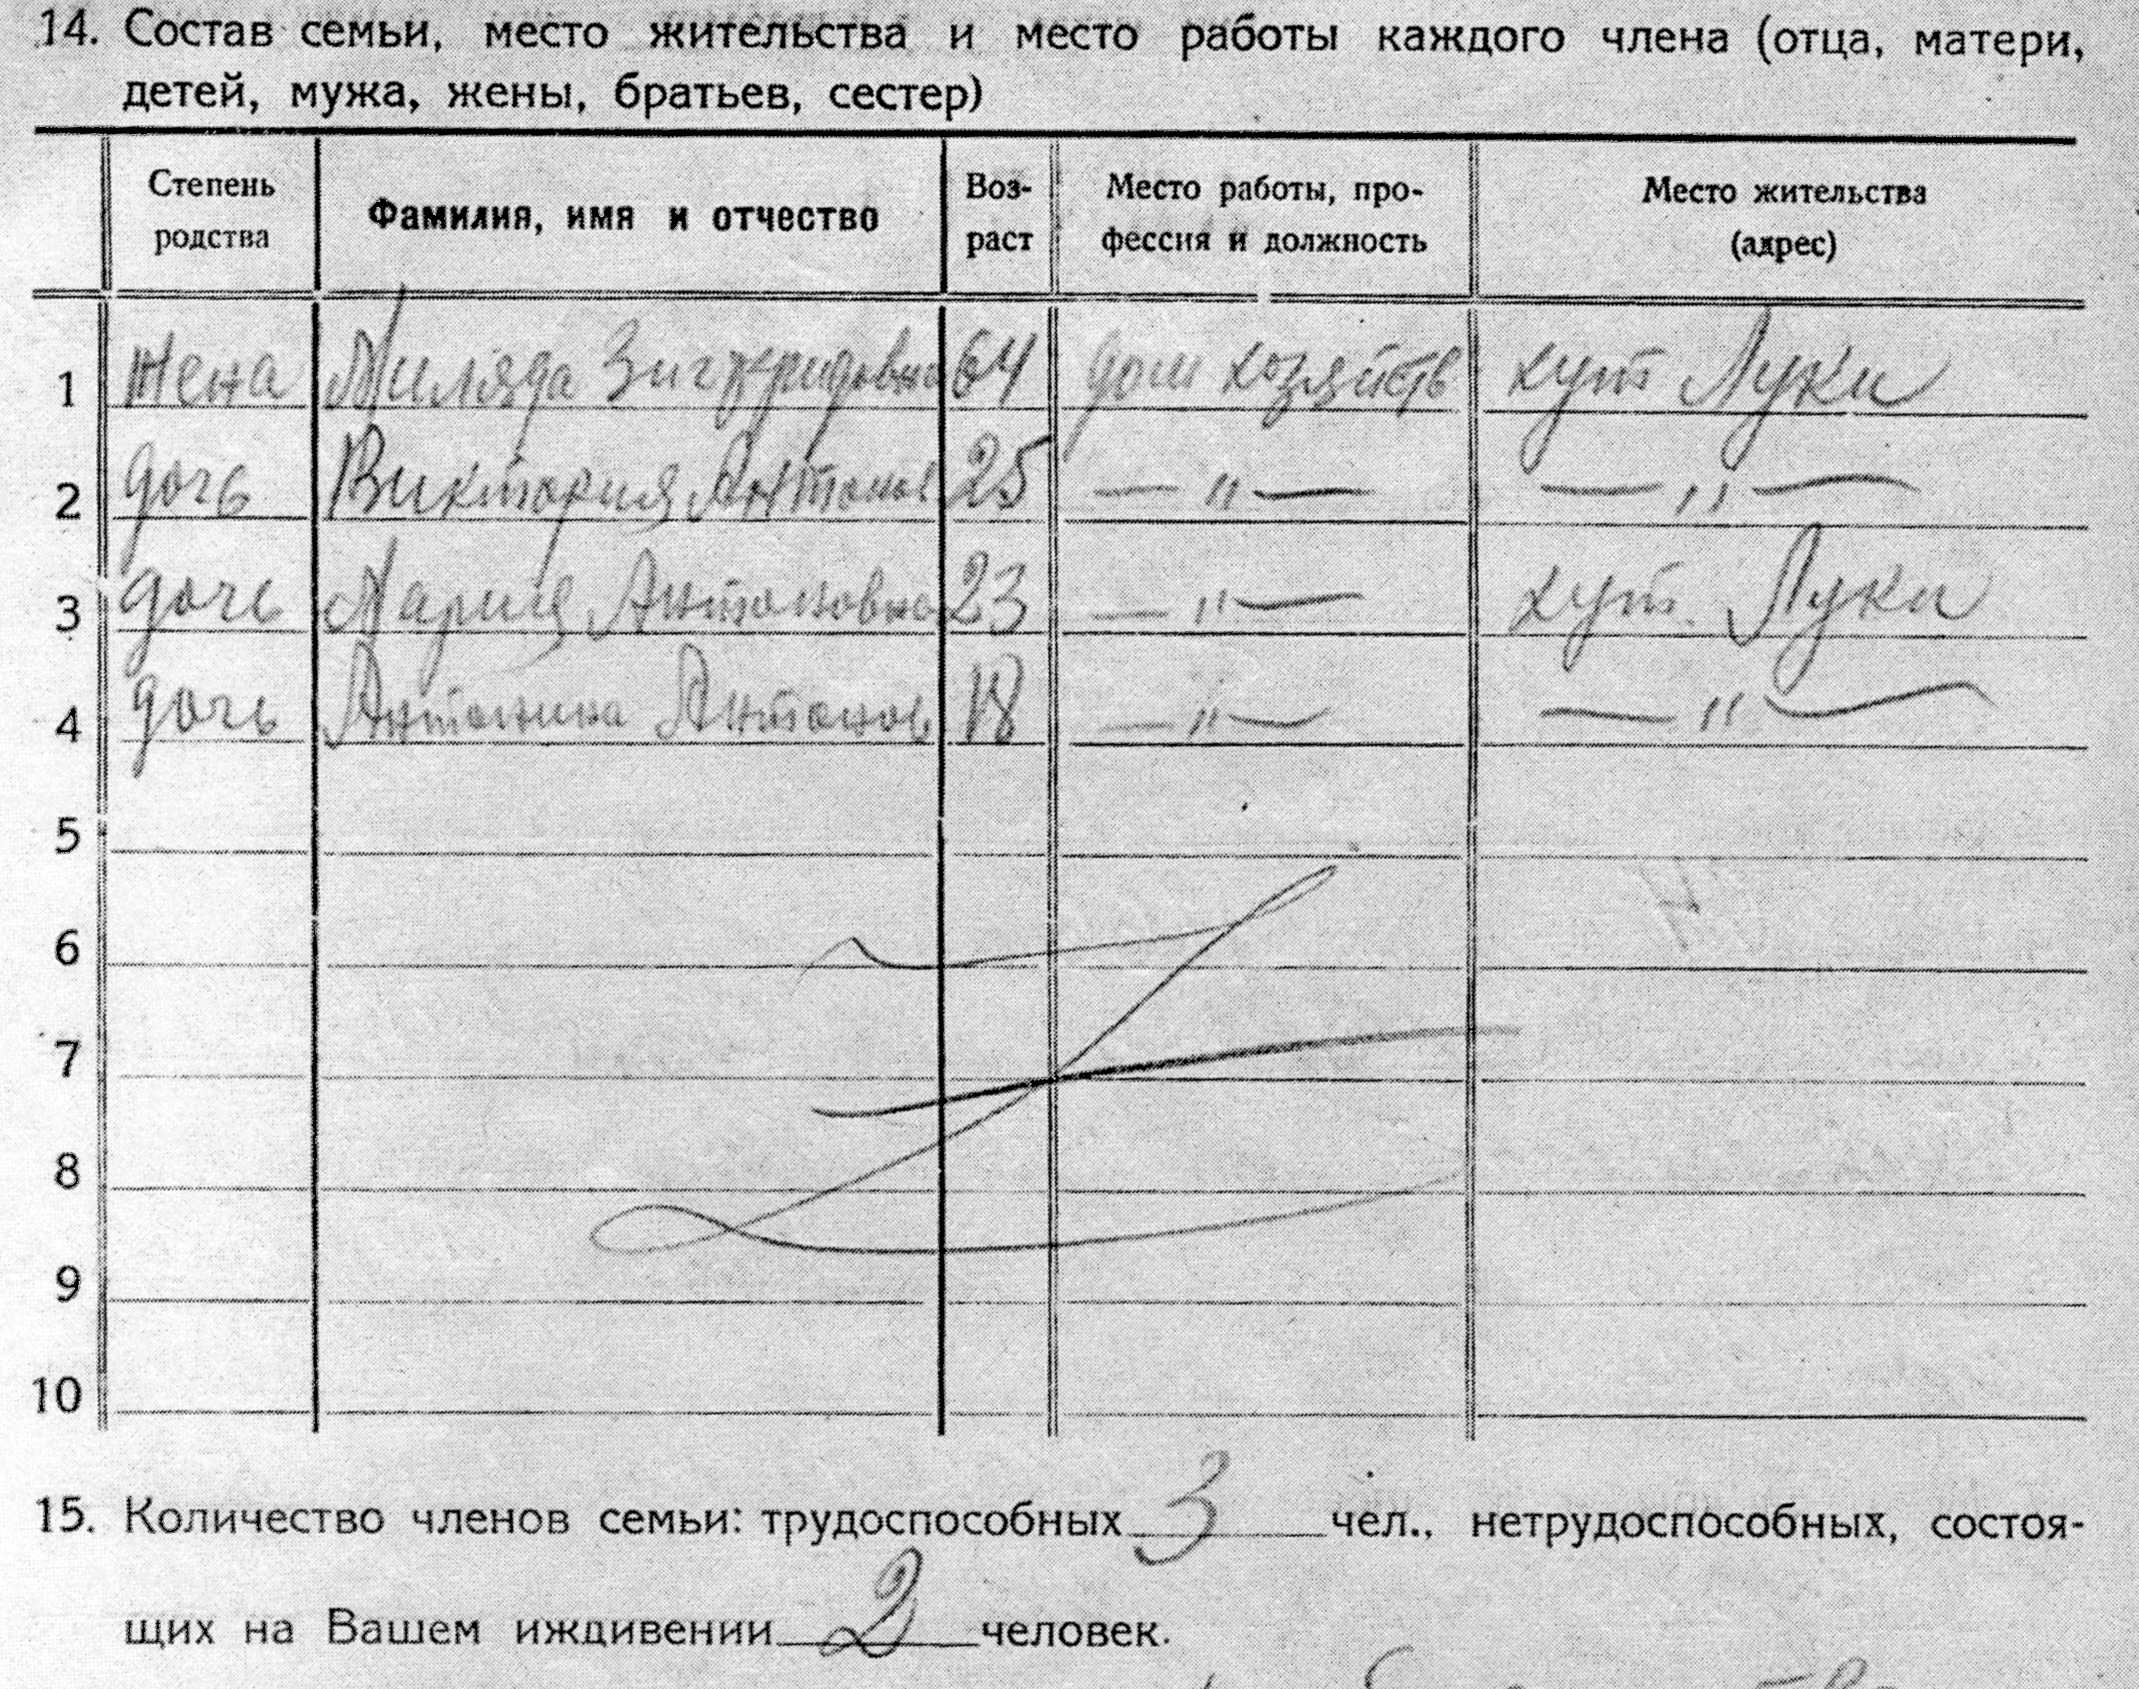 14. Состав семьи, место жительства и место работы каждого члена (отца, матери,
детей, мужа, жены, братьев, сестер)
Степень родства Фамилия, имя и отчество Воз-раст Место работы, про-фессия и должность Место жительства (адрес)
1 жена Миляда Зигфридовна 64 дом хозяйств хут Луки
2 дочь Виктория Антонов 25 — " — — " —
3 дочь Мария Антоновна 23 — " — хут. Луки
4 дочь Антонина Антонов 18 — " — — " —
5
6
7
8
9
10
15. Количество членов семьи: трудоспособных 3 чел., нетрудоспособных, состоя-
щих на Вашем иждивении 2 человек.